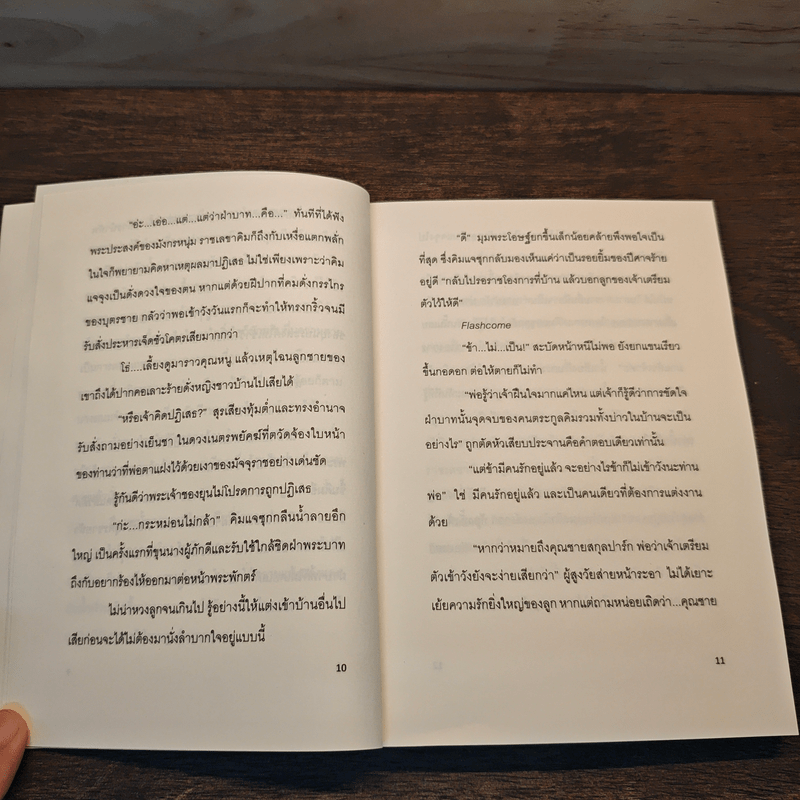 "อ่ะ...เอ่อ...แต่...แต่ว่าฝ่าบาท...คือ..." ทันทีที่ได้ฟัง
พระประสงค์ของมังกรหนุ่ม ราชเลขาคิมก็ถึงกับเหงื่อแตกพลั่ก
ในใจก็พยายามคิดหาเหตุผลมาปฏิเสธ ไม่ใช่เพียงเพราะว่าคิม
แจจุงเป็นดั่งดวงใจของตน หากแต่ด้วยฝีปากที่คมดั่งกรรไกร
ของบุตรชาย กลัวว่าพอเข้าวังวันแรกก็จะทำให้ทรงกริ้วจนมี
รับสั่งประหารเจ็ดชั่วโคตรเสียมากกว่า
โธ่....เลี้ยงดูมาราวคุณหนู แล้วเหตุไฉนลูกชายของ
เขาถึงได้ปากคอเลาะร้ายดั่งหญิงชาวบ้านไปเสียได้
"หรือเจ้าคิดปฏิเสธ?" สุรเสียงทุ้มต่ำและทรงอำนาจ
รับสั่งถามอย่างเย็นชา ในดวงเนตรพยัคฆ์ที่ตวัดจ้องใบหน้า
ของท่านว่าที่พ่อตาแฝงไว้ด้วยเงาของมัจจุราชอย่างเด่นชัด
รู้กันดีว่าพระเจ้าชองยุนไม่โปรดการถูกปฏิเสธ
"ก่ะ...กระหม่อมไม่กล้า" คิมแจซุกกลืนน้ำลายอึก
ใหญ่ เป็นครั้งแรกที่ขุนนางผู้ภักดีและรับใช้ใกล้ชิดฝ่าพระบาท
ถึงกับอยากร้องไห้ออกมาต่อหน้าพระพักตร์
ไม่น่าหวงลูกจนเกินไป รู้อย่างนี้ให้แต่งเข้าบ้านอื่นไป
เสียก่อนจะได้ไม่ต้องมานั่งลำบากใจอยู่แบบนี้
10
"ดี" มุมพระโอษฐ์ยกขึ้นเล็กน้อยคล้ายพึงพอใจเป็น
ที่สุด ซึ่งคิมแจซุกกลับมองเห็นแค่ว่าเป็นรอยยิ้มของปีศาจร้าย
อยู่ดี "กลับไปรอราชโองการที่บ้าน แล้วบอกลูกของเจ้าเตรียม
ตัวไว้ให้ดี"
Flashcome
"ข้า...ไม่...เป็น!" สะบัดหน้าหนีไม่พอ ยังยกแขนเรียว
ขึ้นกอดอก ต่อให้ตายก็ไม่ทำ
"พ่อรู้ว่าเจ้าฝืนใจมากแค่ไหน แต่เจ้าก็รู้ดีว่าการขัดใจ
ฝ่าบาทนั้นจุดจบของคนตระกูลคิมรวมทั้งบ่าวในบ้านจะเป็น
อย่างไร" ถูกตัดหัวเสียบประจานคือคำตอบเดียวเท่านั้น
"แต่ข้ามีคนรักอยู่แล้ว จะอย่างไรข้าก็ไม่เข้าวังนะท่าน
พ่อ" ใช่ มีคนรักอยู่แล้ว และเป็นคนเดียวที่ต้องการแต่งงาน
ด้วย
"หากว่าหมายถึงคุณชายสกุลปาร์ก พ่อว่าเจ้าเตรียม
ตัวเข้าวังยังจะง่ายเสียกว่า" ผู้สูงวัยส่ายหน้าระอา ไม่ได้เยาะ
เย้ยความรักยิ่งใหญ่ของลูก หากแต่ถามหน่อยเถิดว่า...คุณชาย
11